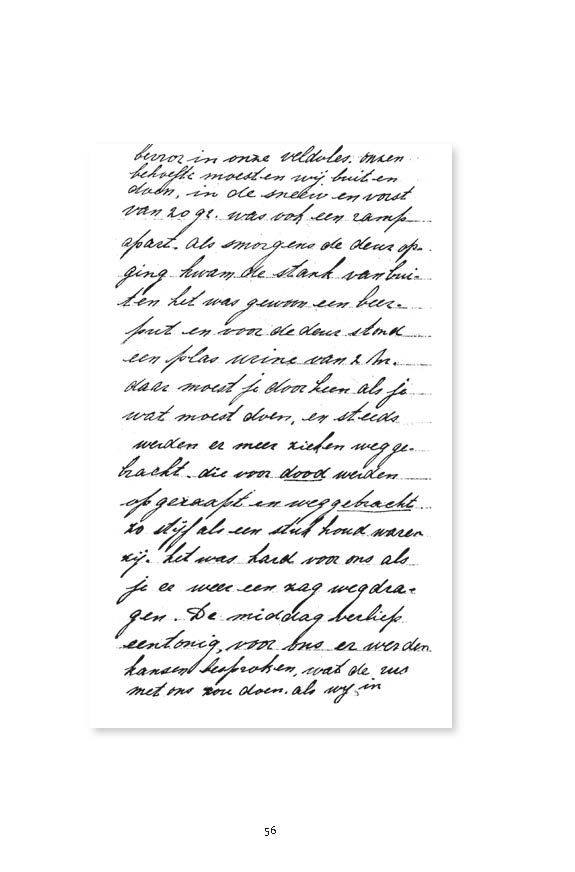 bevroz in onze veldvles. onzen
behoefte moesten wij buiten
doen, in de sneeu en vorst
van 20 gr. was ook een ramp
apart. als smorgens de deur op-
ging kwam die stank van bui-
ten het was gewoon een beer-
put en voor de deur stond
een plas urine van 2 M.
daar moest je door heen als je
wat moest doen, en steeds
werden er meer zieken wegge-
bracht. die voor dood werden
opgeraapt en weggebracht
zo stijf als een stuk houd waren
zij. het was hard voor ons als
je er weer een zag wegdra-
gen. De middag verliep
eentonig, voor ons er werden
kansen besproken, wat de rus
met ons zou doen. als wij in
56